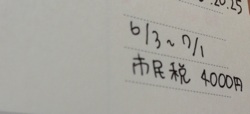 .20.25
6/3〜7/1
市民税 4000円